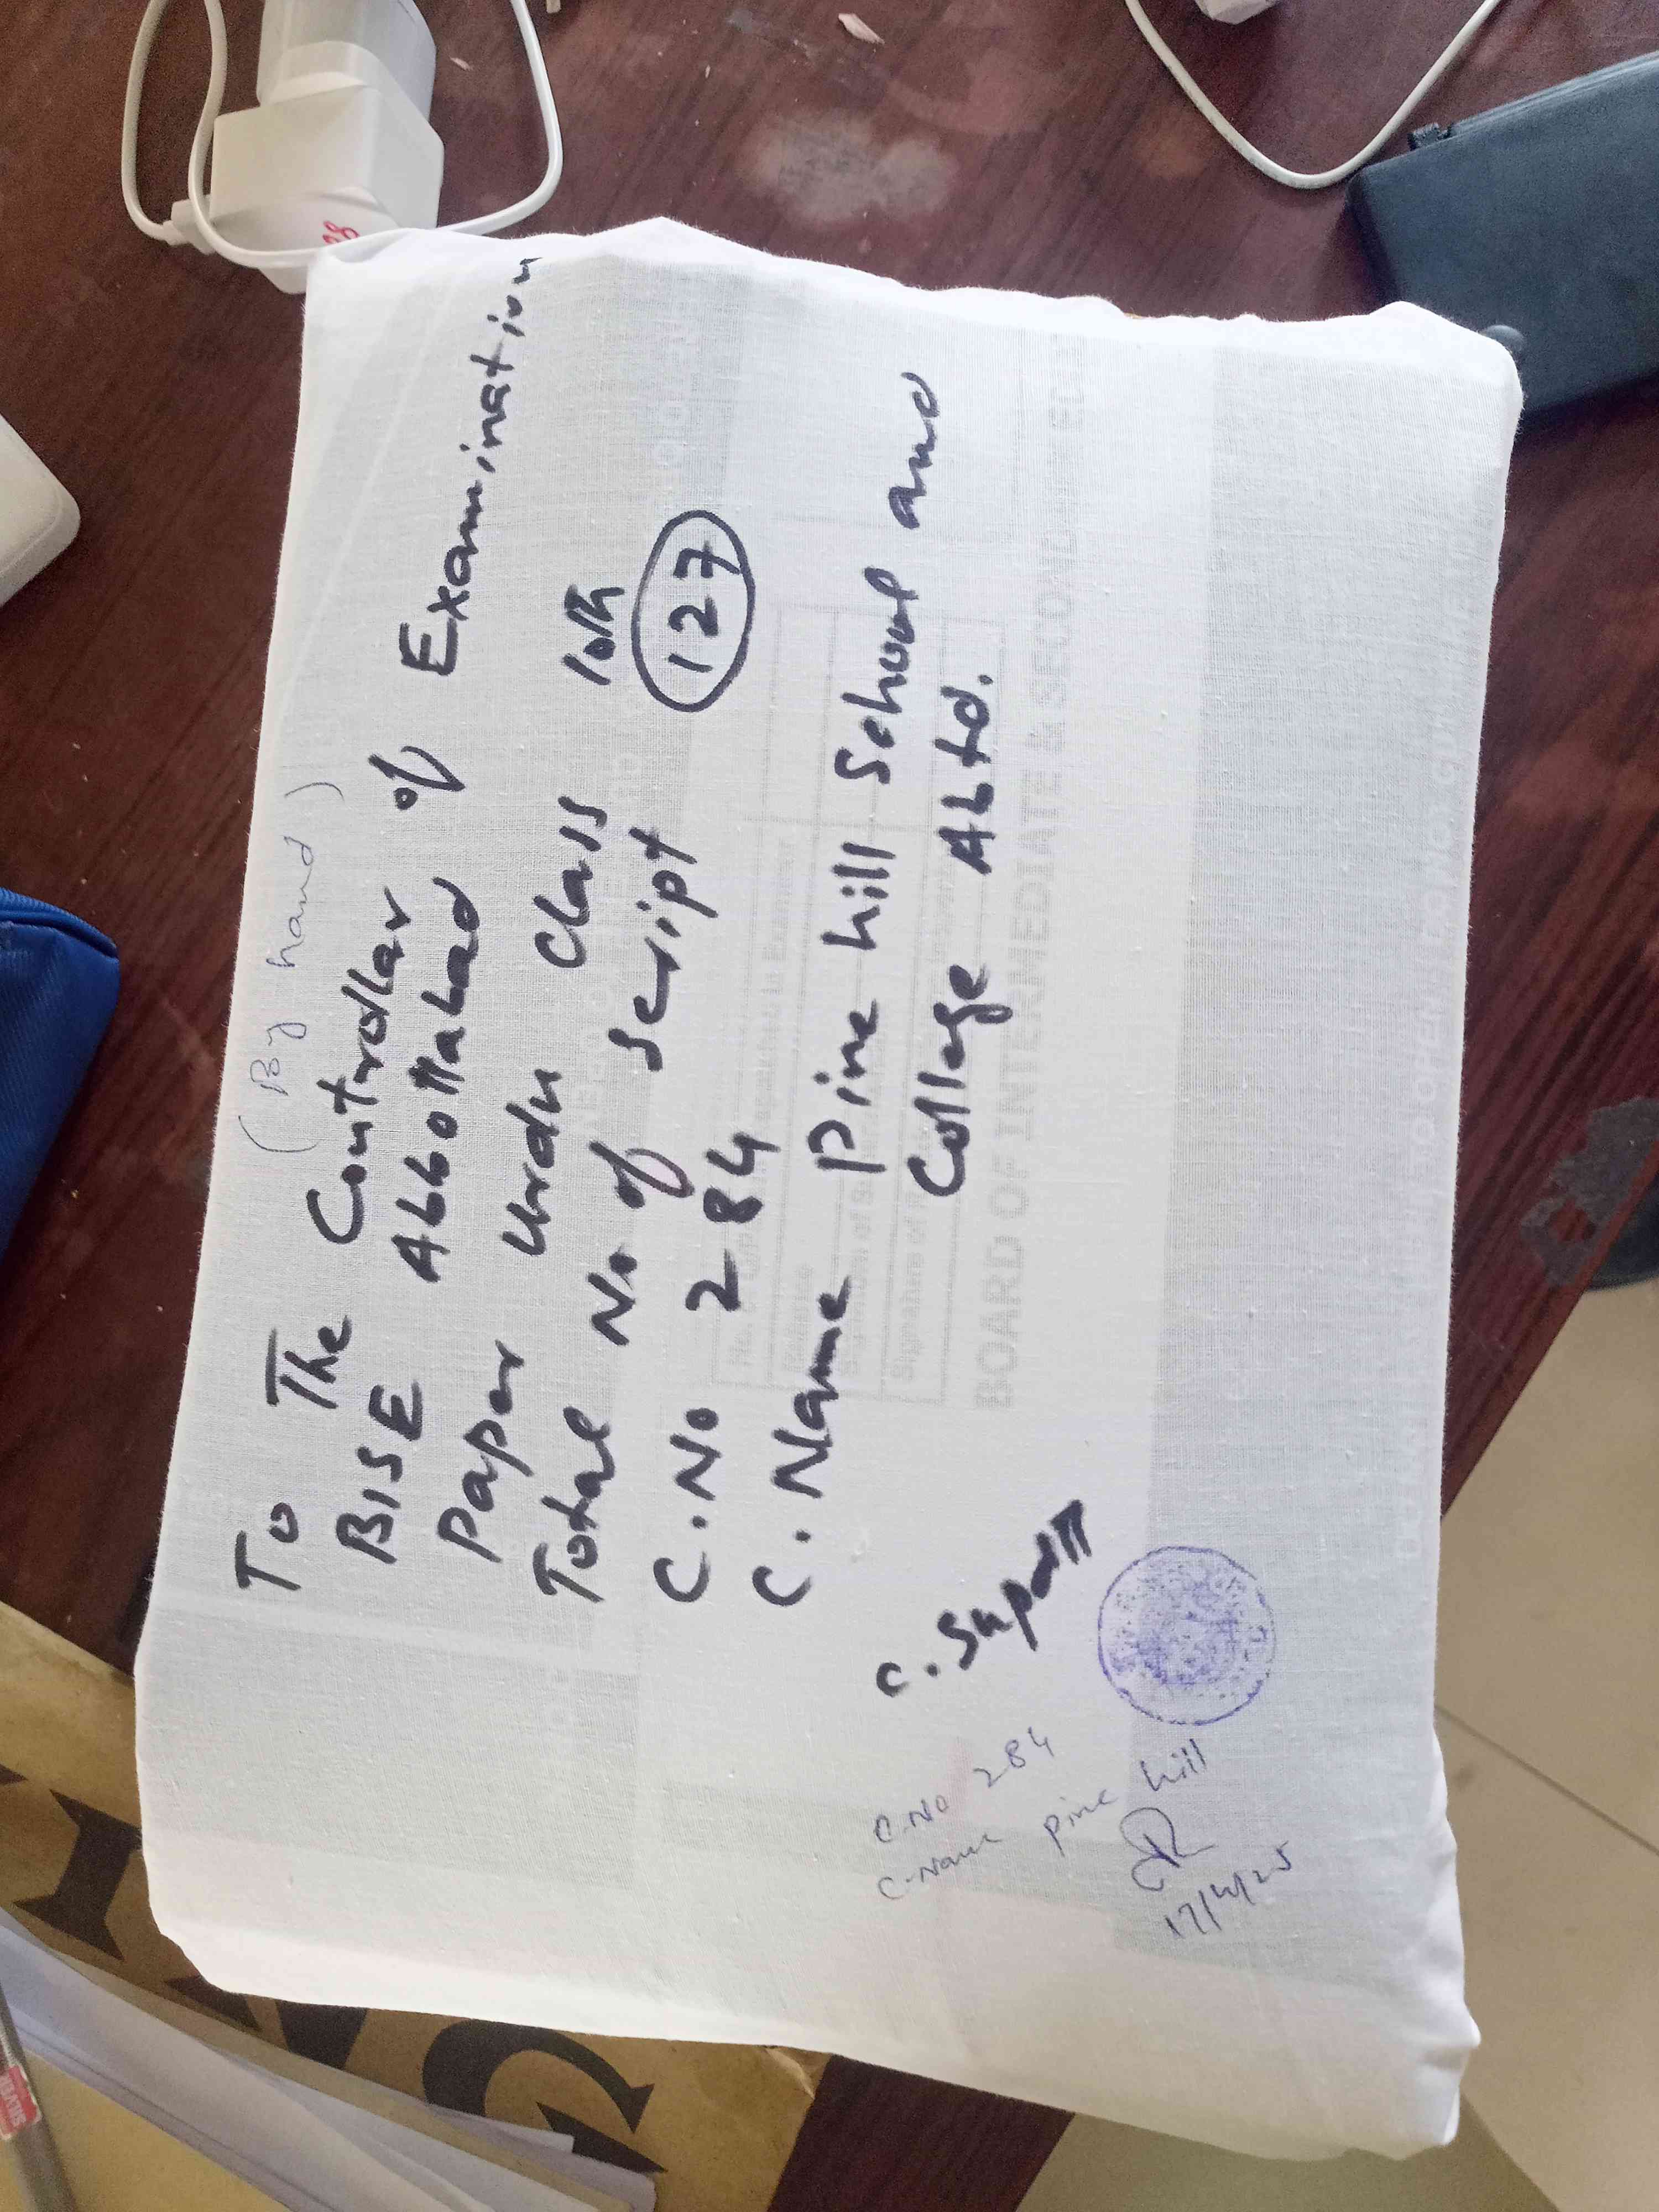 (By hand)
To The Controllar of Examination
BISE Abbottabad
Paper Urdu Class 10th
Total No of script 127
C.No 284
C. Name Pine hill School and
College Abtd.
C. Supdtt
C.No 284
C-Name pine hill
17/4/25
BOARD OF INTERMEDIATE & SECOND
Signature of
08